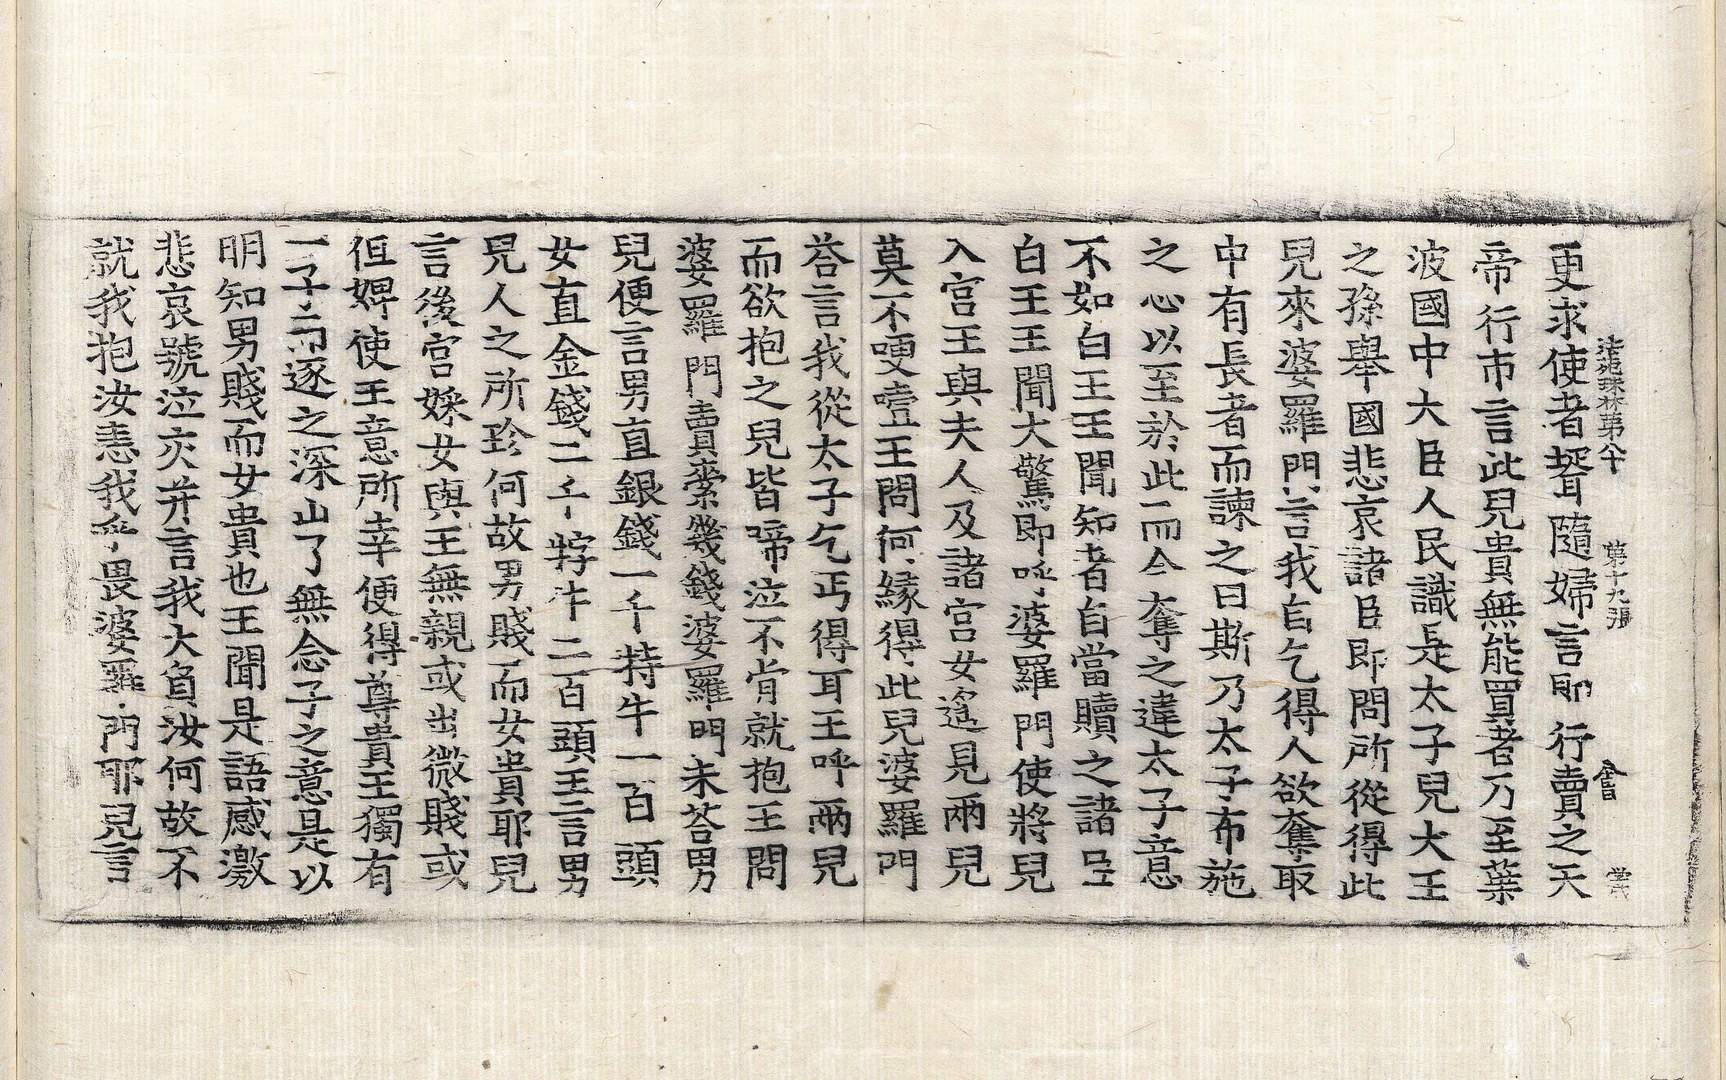 法苑珠林第八十 第十九張 會
更求使者壻隨婦言即行賣之天
帝行市言此兒貴無能買者乃至葉
波國中大臣人民識是太子兒大王
之孫舉國悲哀諸臣即問所從得此
兒來婆羅門言我自乞得人欲奪取
中有長者而諫之曰斯乃太子布施
之心以至於此而今奪之違太子意
不如白王王聞知者自當贖之諸臣
白王王聞大驚即呼婆羅門使將兒
入宮王與夫人及諸宮女遙見兩兒
莫不哽噎王問何緣得此兒婆羅門
荅言我從太子乞丐得耳王呼兩兒
而欲抱之兒皆啼泣不肯就抱王問
婆羅門賣索幾錢婆羅門未荅男
兒便言男直銀錢一千特牛一百頭
女直金錢二千牸牛二百頭王言男
兒人之所珍何故男賤而女貴耶兒
言後宮婇女與王無親或出微賤或
但婢使王意所幸便得尊貴王獨有
一子而逐之深山了無念子之意是以
明知男賤而女貴也王聞是語感激
悲哀號泣交并言我大負汝何故不
就我抱汝恚我乎畏婆羅門耶兒言